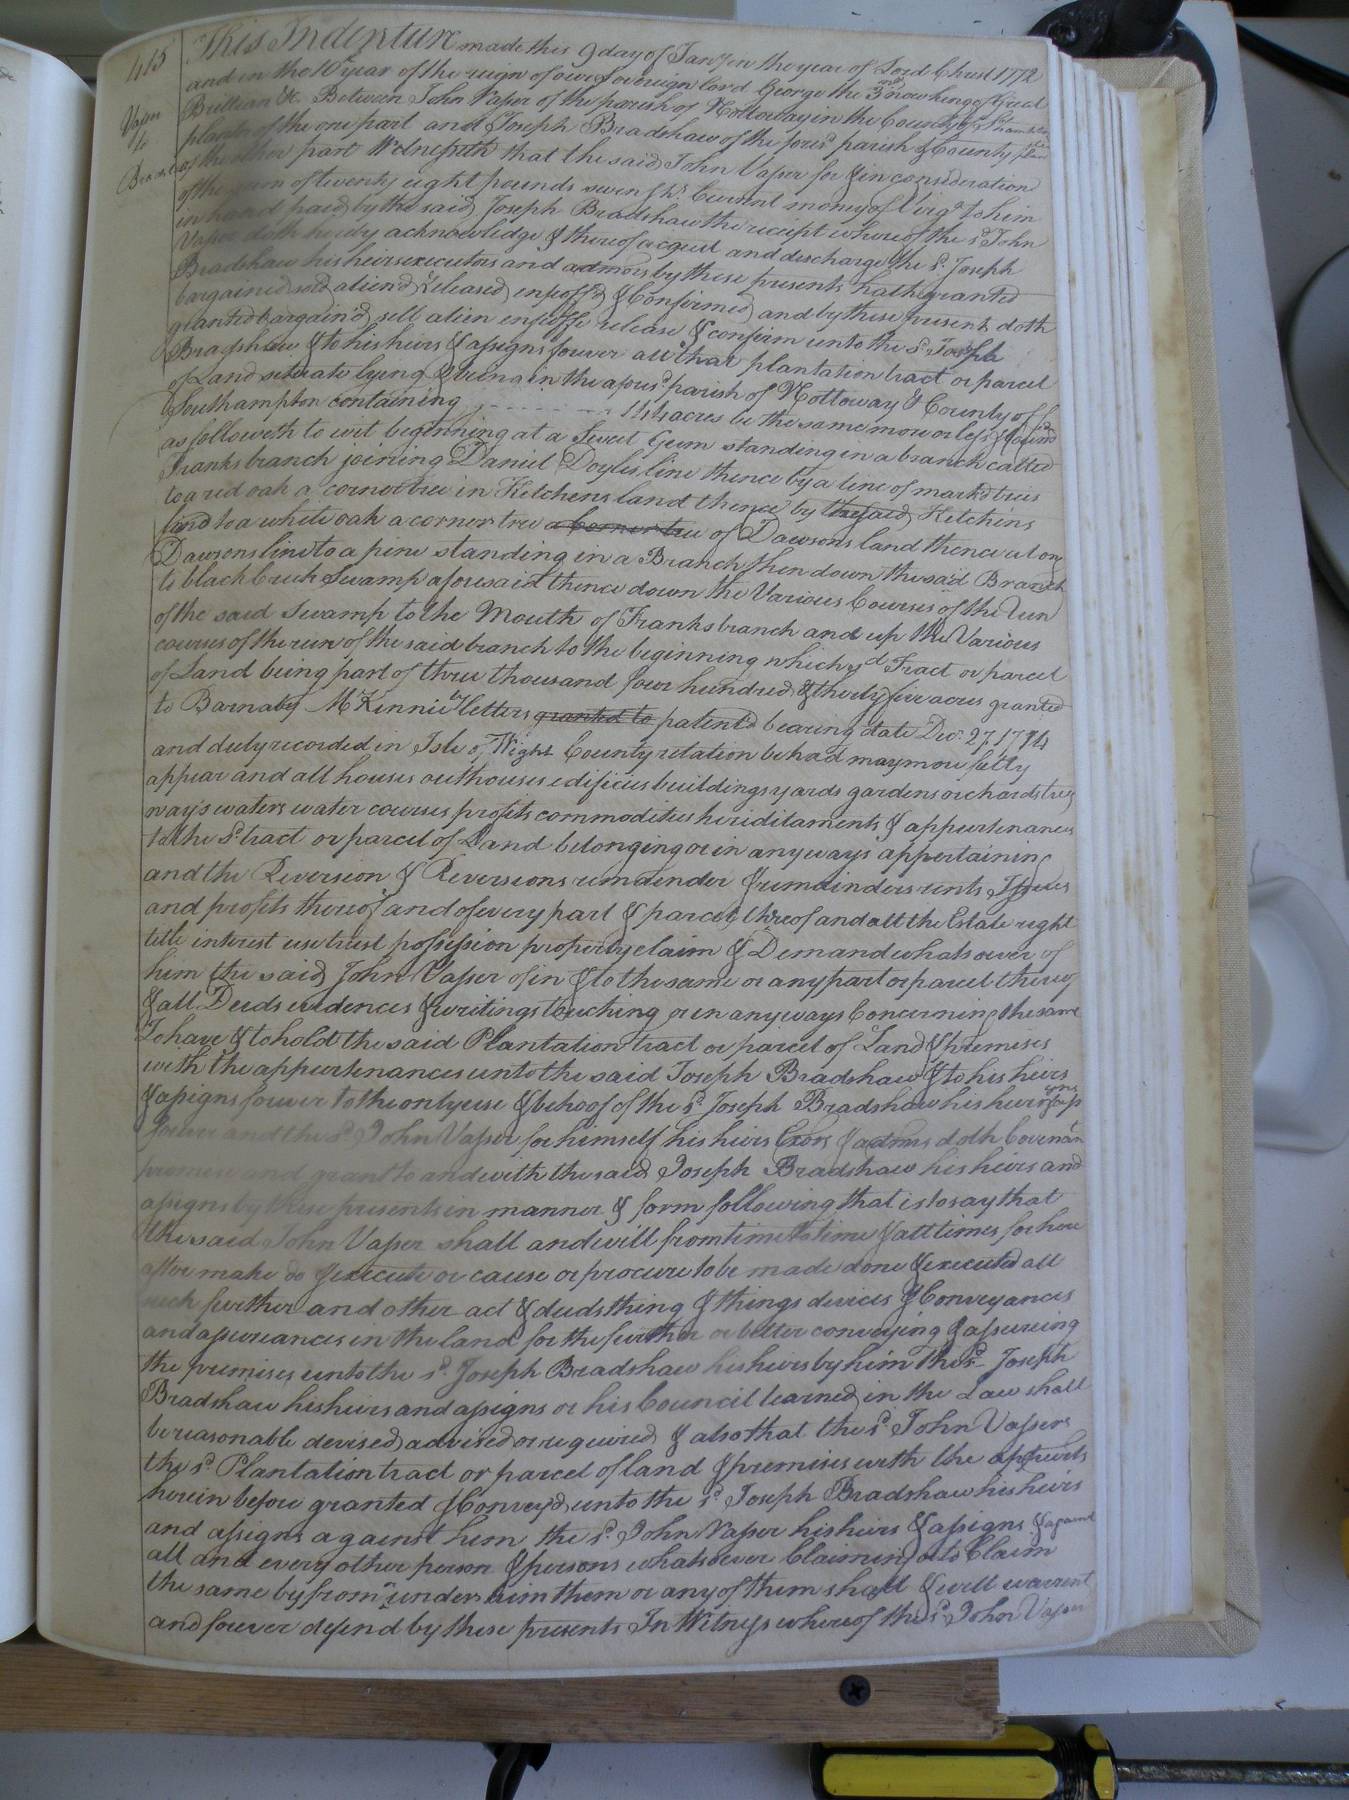 415
Vaser
to
This Indenture made this 9 day of Janry in the year of Lord Christ 1772
and in the 10th year of the reign of our Sovereign lord George the 3rd now king of Great
Brittian &c. Between John Vaser of the parish of Nottoway in the County of
planter of the one part and Joseph Bradshaw of the fores'd parish & County
of the other part Witnesseth that the said John Vaser for & in consideration
of the sum of twenty eight pounds seven sh's Current money of Virga to him
in hand paid by the said Joseph Bradshaw the receipt whereof the sd John
Vaser doth hereby acknowledge & thereof acquit and discharge the sd Joseph
Bradshaw his heirs executors and admors by these presents hath granted
bargained sold aliend released enfeoff'd & Confirmed and by these presents doth
grant bargain'd sell alien enfeoffe release & confirm unto the sd Joseph
Bradshaw & to his heirs & assigns forever all that plantation tract or parcel
of Land setuate lying & being in the afores'd parish of Nottoway & County of
Southampton containing - - - - - - - 144 acres be the same more or less & bound
as followeth to wit beginning at a Sweet Gum standing in a branch called
Franks branch joining Daniel Doyles line thence by a line of markd trees
to a red oak a cornor tree in Kitchens land thence by the said Kitchins
land to a white oak a corner tree a corner tree of Dawsons land thence along
Dawsons line to a pine standing in a Branch then down the said Branch
to black Creek Swamp aforesaid thence down the Various Courses of the run
of the said Swamp to the Mouth of Franks branch and up the Various
courses of the run of the said branch to the beginning which sd Tract or parcel
of Land being part of three thousand four hundred & thirty five acres granted
to Barnaby McKinnie by letters granted to patent'd bearing date Decr 27. 1714
and duly recorded in Isle of Wight County relation be had may more fully
appear and all houses outhouses edificies buildings yards gardens orchards trees
ways waters water courses profits commodities heriditaments & appurtenances
to the sd tract or parcel of Land belonging or in anyways appertaining
and the Reversion & Reversions remainder & remainders rents Issues
and profits thereof and of every part & parcel thereof and all the Estate right
title interest use trust possession property claim & Demand whatsoever of
him the said John Vaser of in & to the same or any part or parcel thereof
& all Deeds evidences & writings touching or in anyways Concerning the same
To have & to hold the said Plantation tract or parcel of Land & premises
with the appurtenances unto the said Joseph Bradshaw & to his heirs
& assigns forever to the only use & behoof of the sd Joseph Bradshaw his heirs
forever and the sd John Vaser for himself his heirs Exors & admrs doth Covenan
promise and grant to and with the said Joseph Bradshaw his heirs and
assigns by these presents in manner & form following that is to say that
the said John Vaser shall and will from time to time & all times for here
after make do & execute or cause or procure to be made done & executed all
such further and other act & deeds thing & things devices & Conveyances
and assureances in the land for the further or better conveying & assureing
the premises unto the sd Joseph Bradshaw his heirs by him the sd Joseph
Bradshaw his heirs and assigns or his Council learned in the Law shall
be reasonable devised advised or required & also that the sd John Vaser
the sd Plantation tract or parcel of land & premises with the appurts
herein before granted & Convey'd unto the sd Joseph Bradshaw his heirs
and assigns against him the sd John Vaser his heirs & assigns & against
all and every other person & persons whatsoever Claiming or to Claim
the same by from or under him them or any of them shall & will warrent
and forever defend by these presents In Witness whereof the sd John Vaser